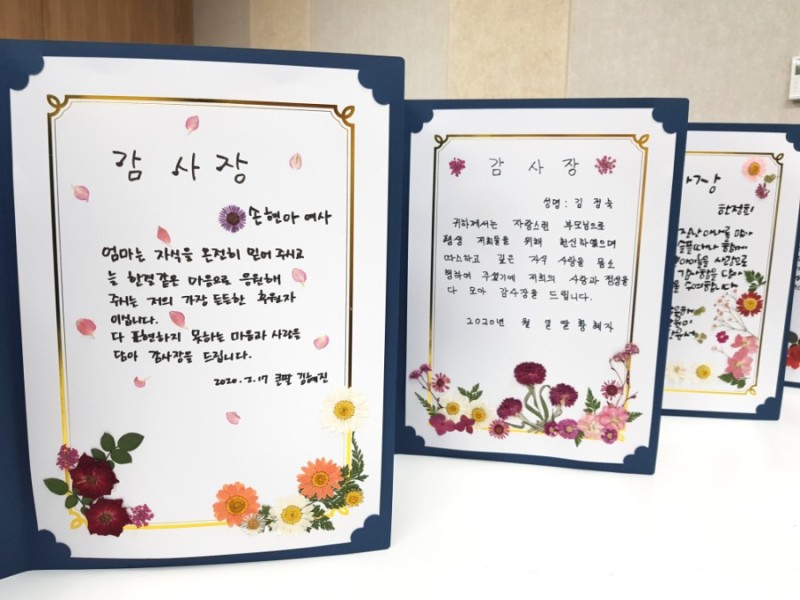 감사장
손현아 여사
엄마는 자식을 온전히 믿어 주시고
늘 한결같은 마음으로 응원해
주시는 저의 가장 든든한 후원자
이십니다.
다 표현하지 못하는 마음과 사랑을
담아 감사장을 드립니다.
2020. 7. 17 큰딸 김혜진
감사장
성명 : 김정숙
귀하께서는 자랑스런 부모님으로
평생 저희들을 위해 헌신하였으며
따스하고 깊은 자식 사랑을 몸소
행하여 주셨기에 저희의 사랑과 정성을
다 모아 감사장을 드립니다.
2020년 월 일 딸 황혜자
사장